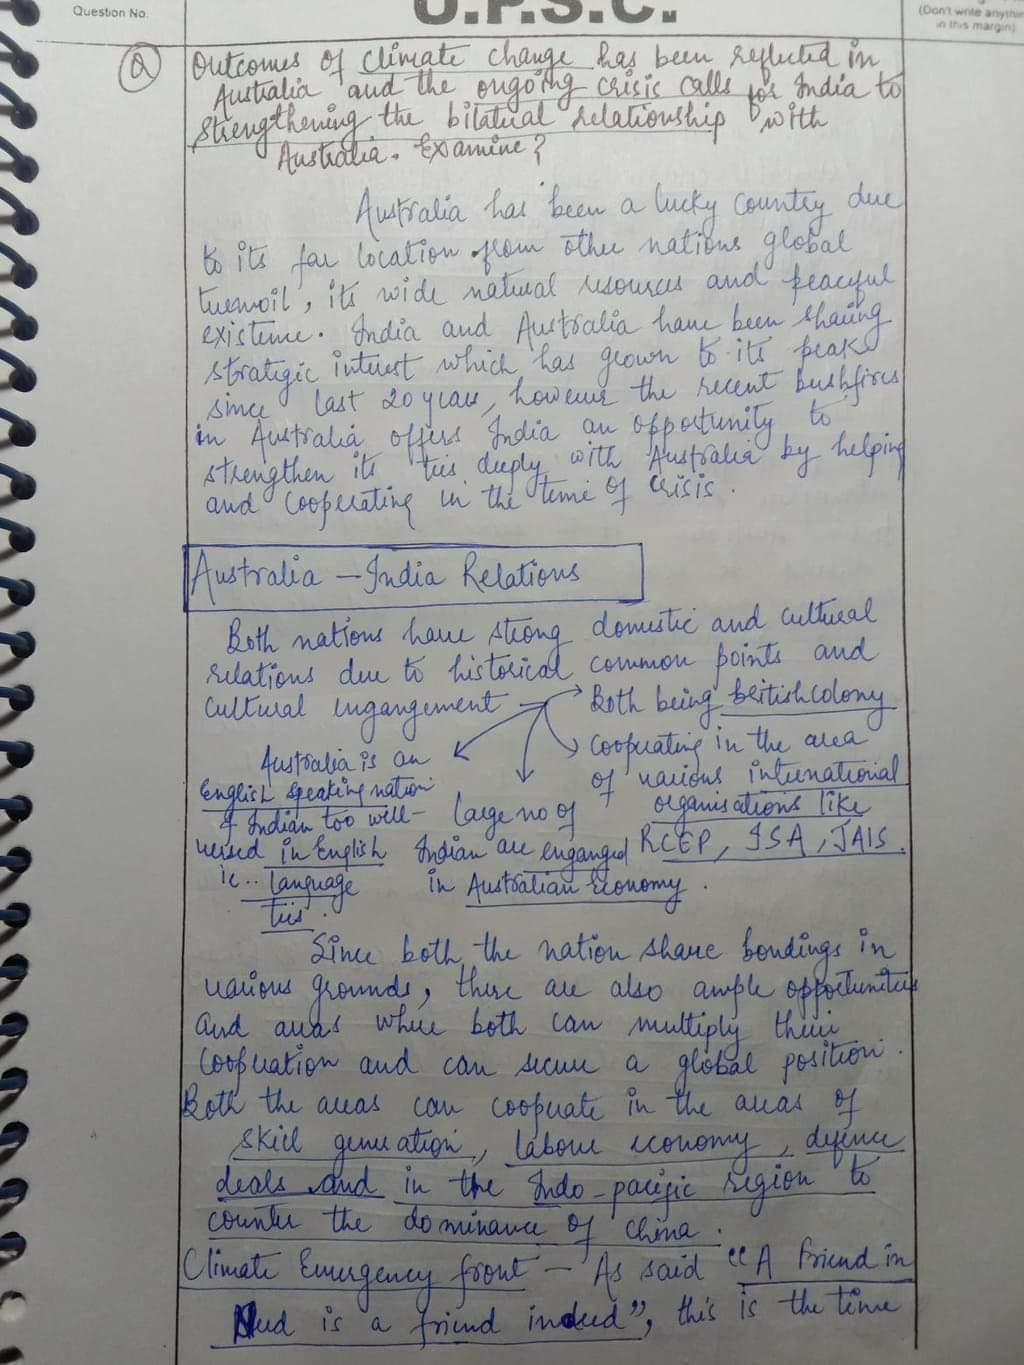 Question No.
U.P.S.C.
(Don't write anything
in this margin)
Q Outcomes of climate change has been reflected in
Australia and the ongoing crisis calls for India to
strengthening the bilateral relationship with
Australia. Examine?
Australia has been a lucky country due
to its far location from other nations global
turmoil, its wide natural resources and peaceful
existence. India and Australia have been sharing
strategic interest which has grown to its peak
since last 20 years, however the recent bushfires
in Australia offers India an opportunity to
strengthen its ties deeply with Australia by helping
and cooperating in the time of crisis.
Australia - India Relations
Both nations have strong domestic and cultural
relations due to historical common points and
cultural engangement
Both being british colony
Cooperating in the area
of various international
organisations like
RCEP, ISA, JAIS.
Large no of
Indian are enganged
in Australian Economy.
Australia is an
English speaking nation
& Indian too well-
versed in English
ie.. language
ties.
Since both the nation share bondings in
various grounds, there are also ample opportunities
and areas where both can multiply their
cooperation and can secure a global position.
Both the areas can cooperate in the areas of
skill generation, labour economy, defence
deals and in the Indo-pacific region to
counter the dominance of China.
Climate Emergency front - As said "A friend in
Need is a friend indeed", this is the time